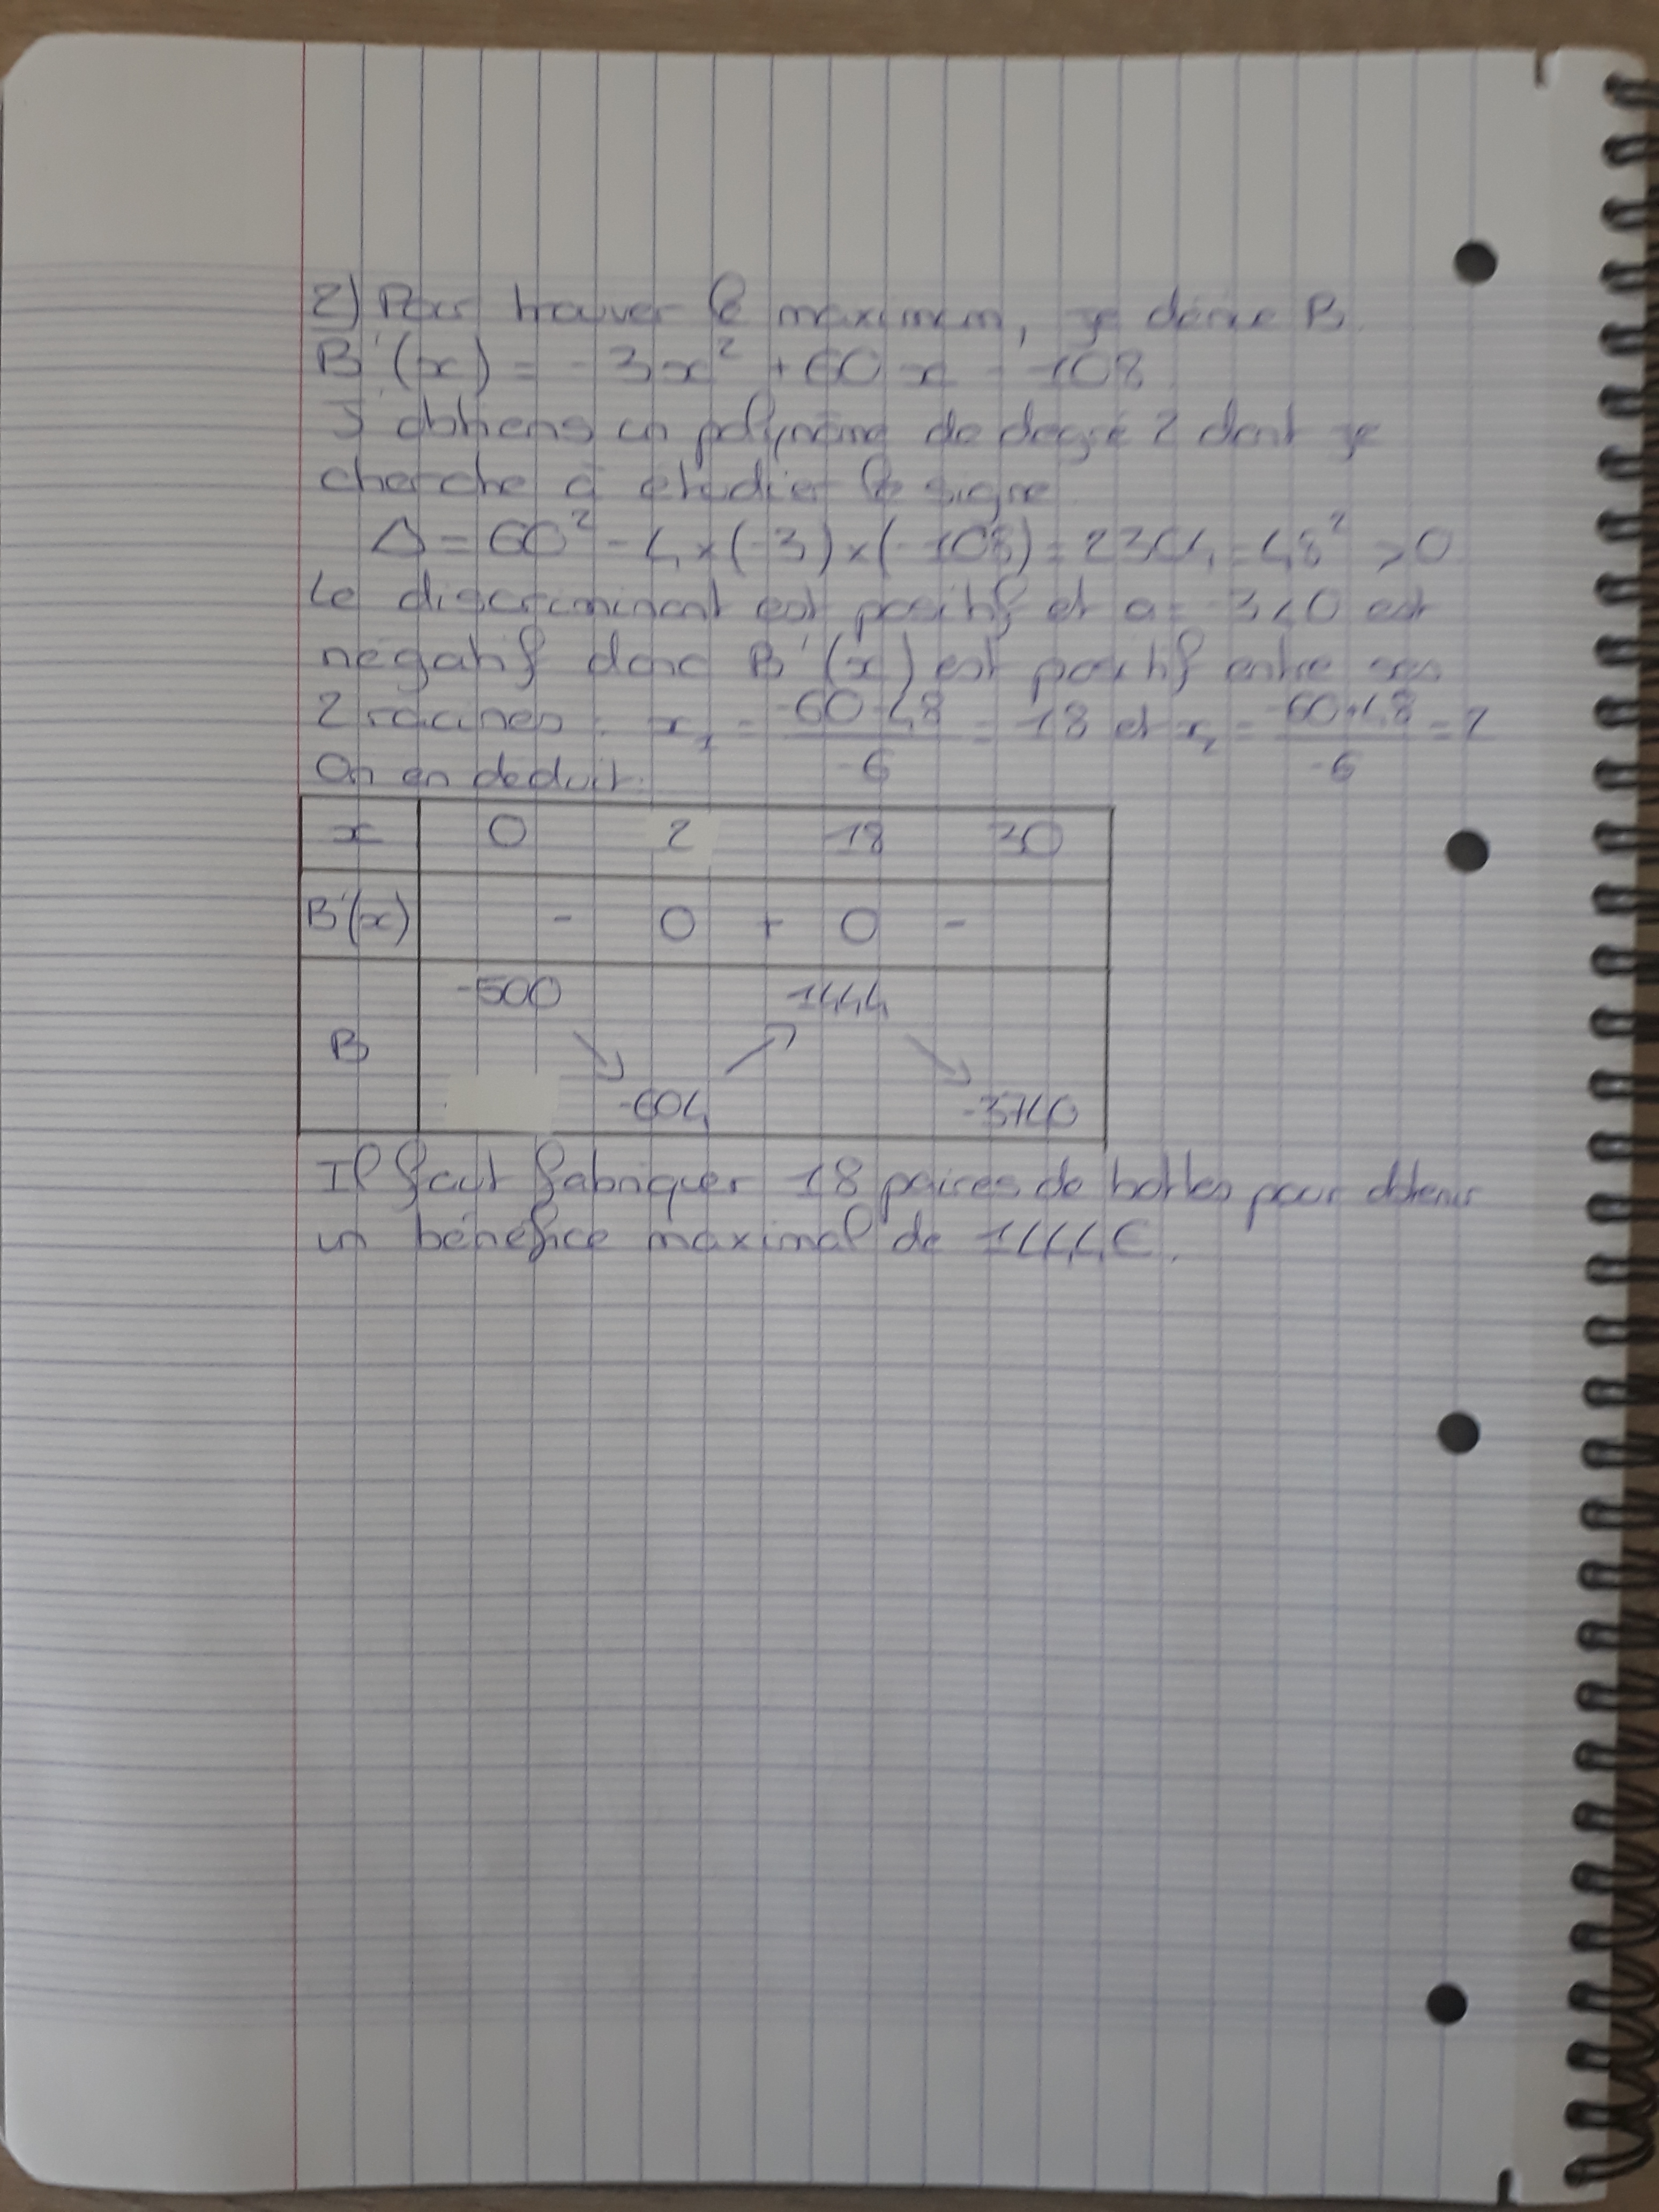 2) Pour trouver le maximum, je dérive B.
B'(x) = -3x² + 60x - 108
J'obtiens un polynôme de degré 2 dont je
cherche à étudier le signe
Δ = 60² - 4 × (-3) × (-108) = 2304 = 48² > 0
Le discriminant est positif et a = -3 < 0 est
négatif donc B'(x) est positif entre ses
2 racines : x₁ = (-60-48)/-6 = 18 et x₂ = (-60+48)/-6 = 2
On en deduit:
x 0 2 18 30
B'(x) - 0 + 0 -
-500 1444
B
-604 -3740
Il faut fabriquer 18 paires de bottes pour obtenir
un bénéfice maximal de 1444€.